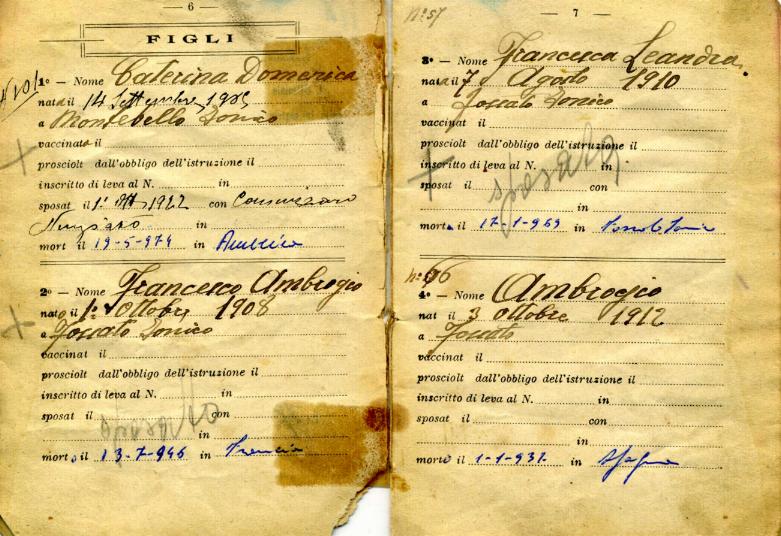 — 6 —
FIGLI
1° — Nome Caterina Domenica
nata il 14 Settembre 1905
a Montebello Ionico
vaccinata il
prosciolt dall'obbligo dell'istruzione il
inscritto di leva al N. in
sposat il 1° 1922 con
in
mort il 19-5-974 in
2° — Nome Francesco Ambrogio
nato il 1° Ottobre 1908
a Fossato Ionico
vaccinat il
prosciolt dall'obbligo dell'istruzione il
inscritto di leva al N. in
sposat il con
sposato
in
morto il 13-7-946 in Francia
N° 57
— 7 —
3° — Nome Francesca Leandra
nata il 7 Agosto 1910
a Fossato Ionico
vaccinat il
prosciolt dall'obbligo dell'istruzione il
inscritto di leva al N. in
sposata
sposat il con
in
morta il 17-1-969 in
N° 66
4° — Nome Ambrogio
nat il 3 Ottobre 1912
a Fossato
vaccinat il
prosciolt dall'obbligo dell'istruzione il
inscritto di leva al N. in
sposat il con
in
morto il 1-1-937 in